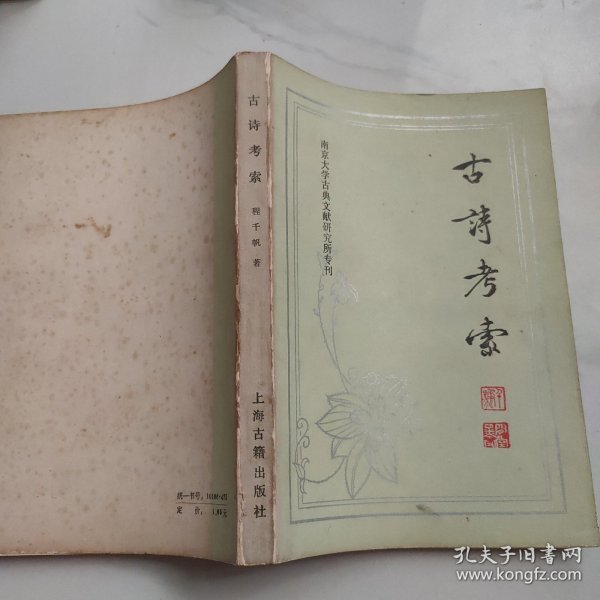 古詩考索
南京大学古典文献研究所专刊
古诗考索
程千帆 著
上海古籍出版社
统一书号：
定 价：
孔夫子旧书网
www.kongfz.com